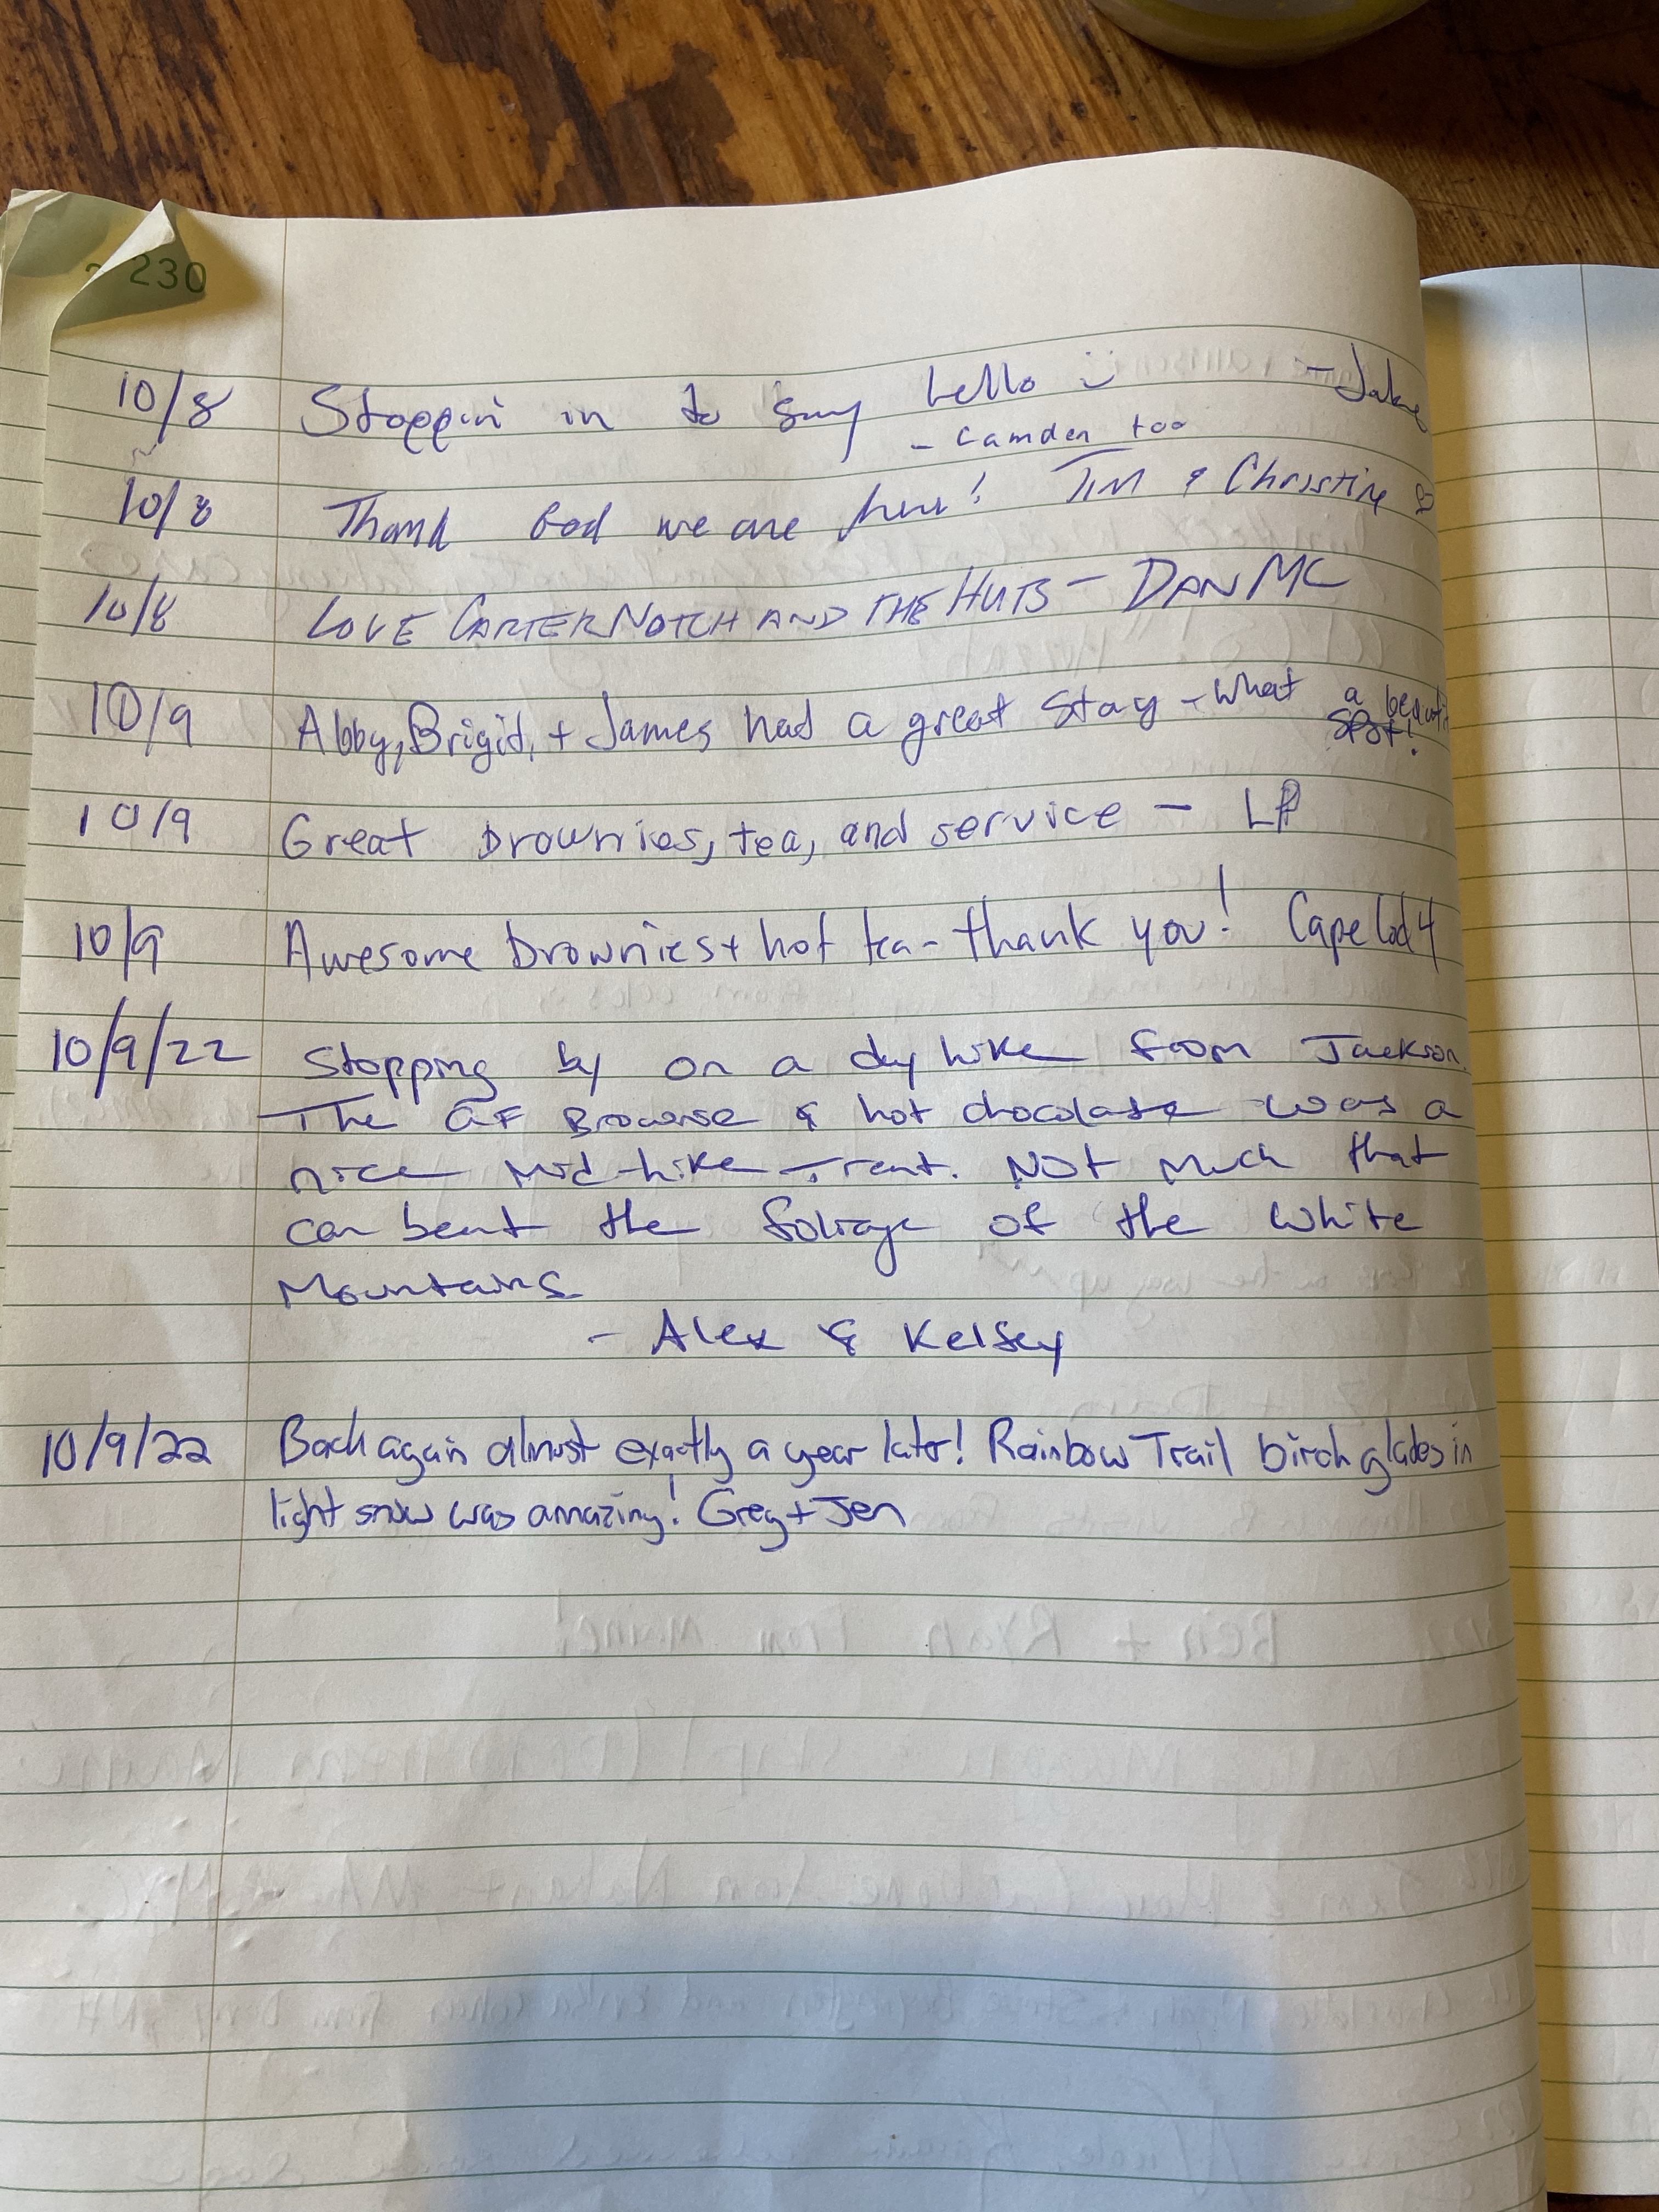 230
10/8 Stoppin in to say hello :) - Jake
- Camden too
10/8 Thank God we are here! Tim & Christine
10/8 LOVE CARTER NOTCH AND THE HUTS - DAN MC
10/9 Abby, Brigid, + James had a great stay - what a
spot!
10/9 Great brownies, tea, and service - LP
10/9 Awesome brownies + hot tea - thank you! Cape Cod 4
10/9/22 Stopping by on a day hike from Jackson.
The GF Brownie & hot chocolate was a
nice mid-hike treat. Not much that
can beat the foliage of the White
Mountains
- Alex & Kelsey
10/9/22 Back again almost exactly a year later! Rainbow Trail birch glades in
light snow was amazing! Greg + Jen